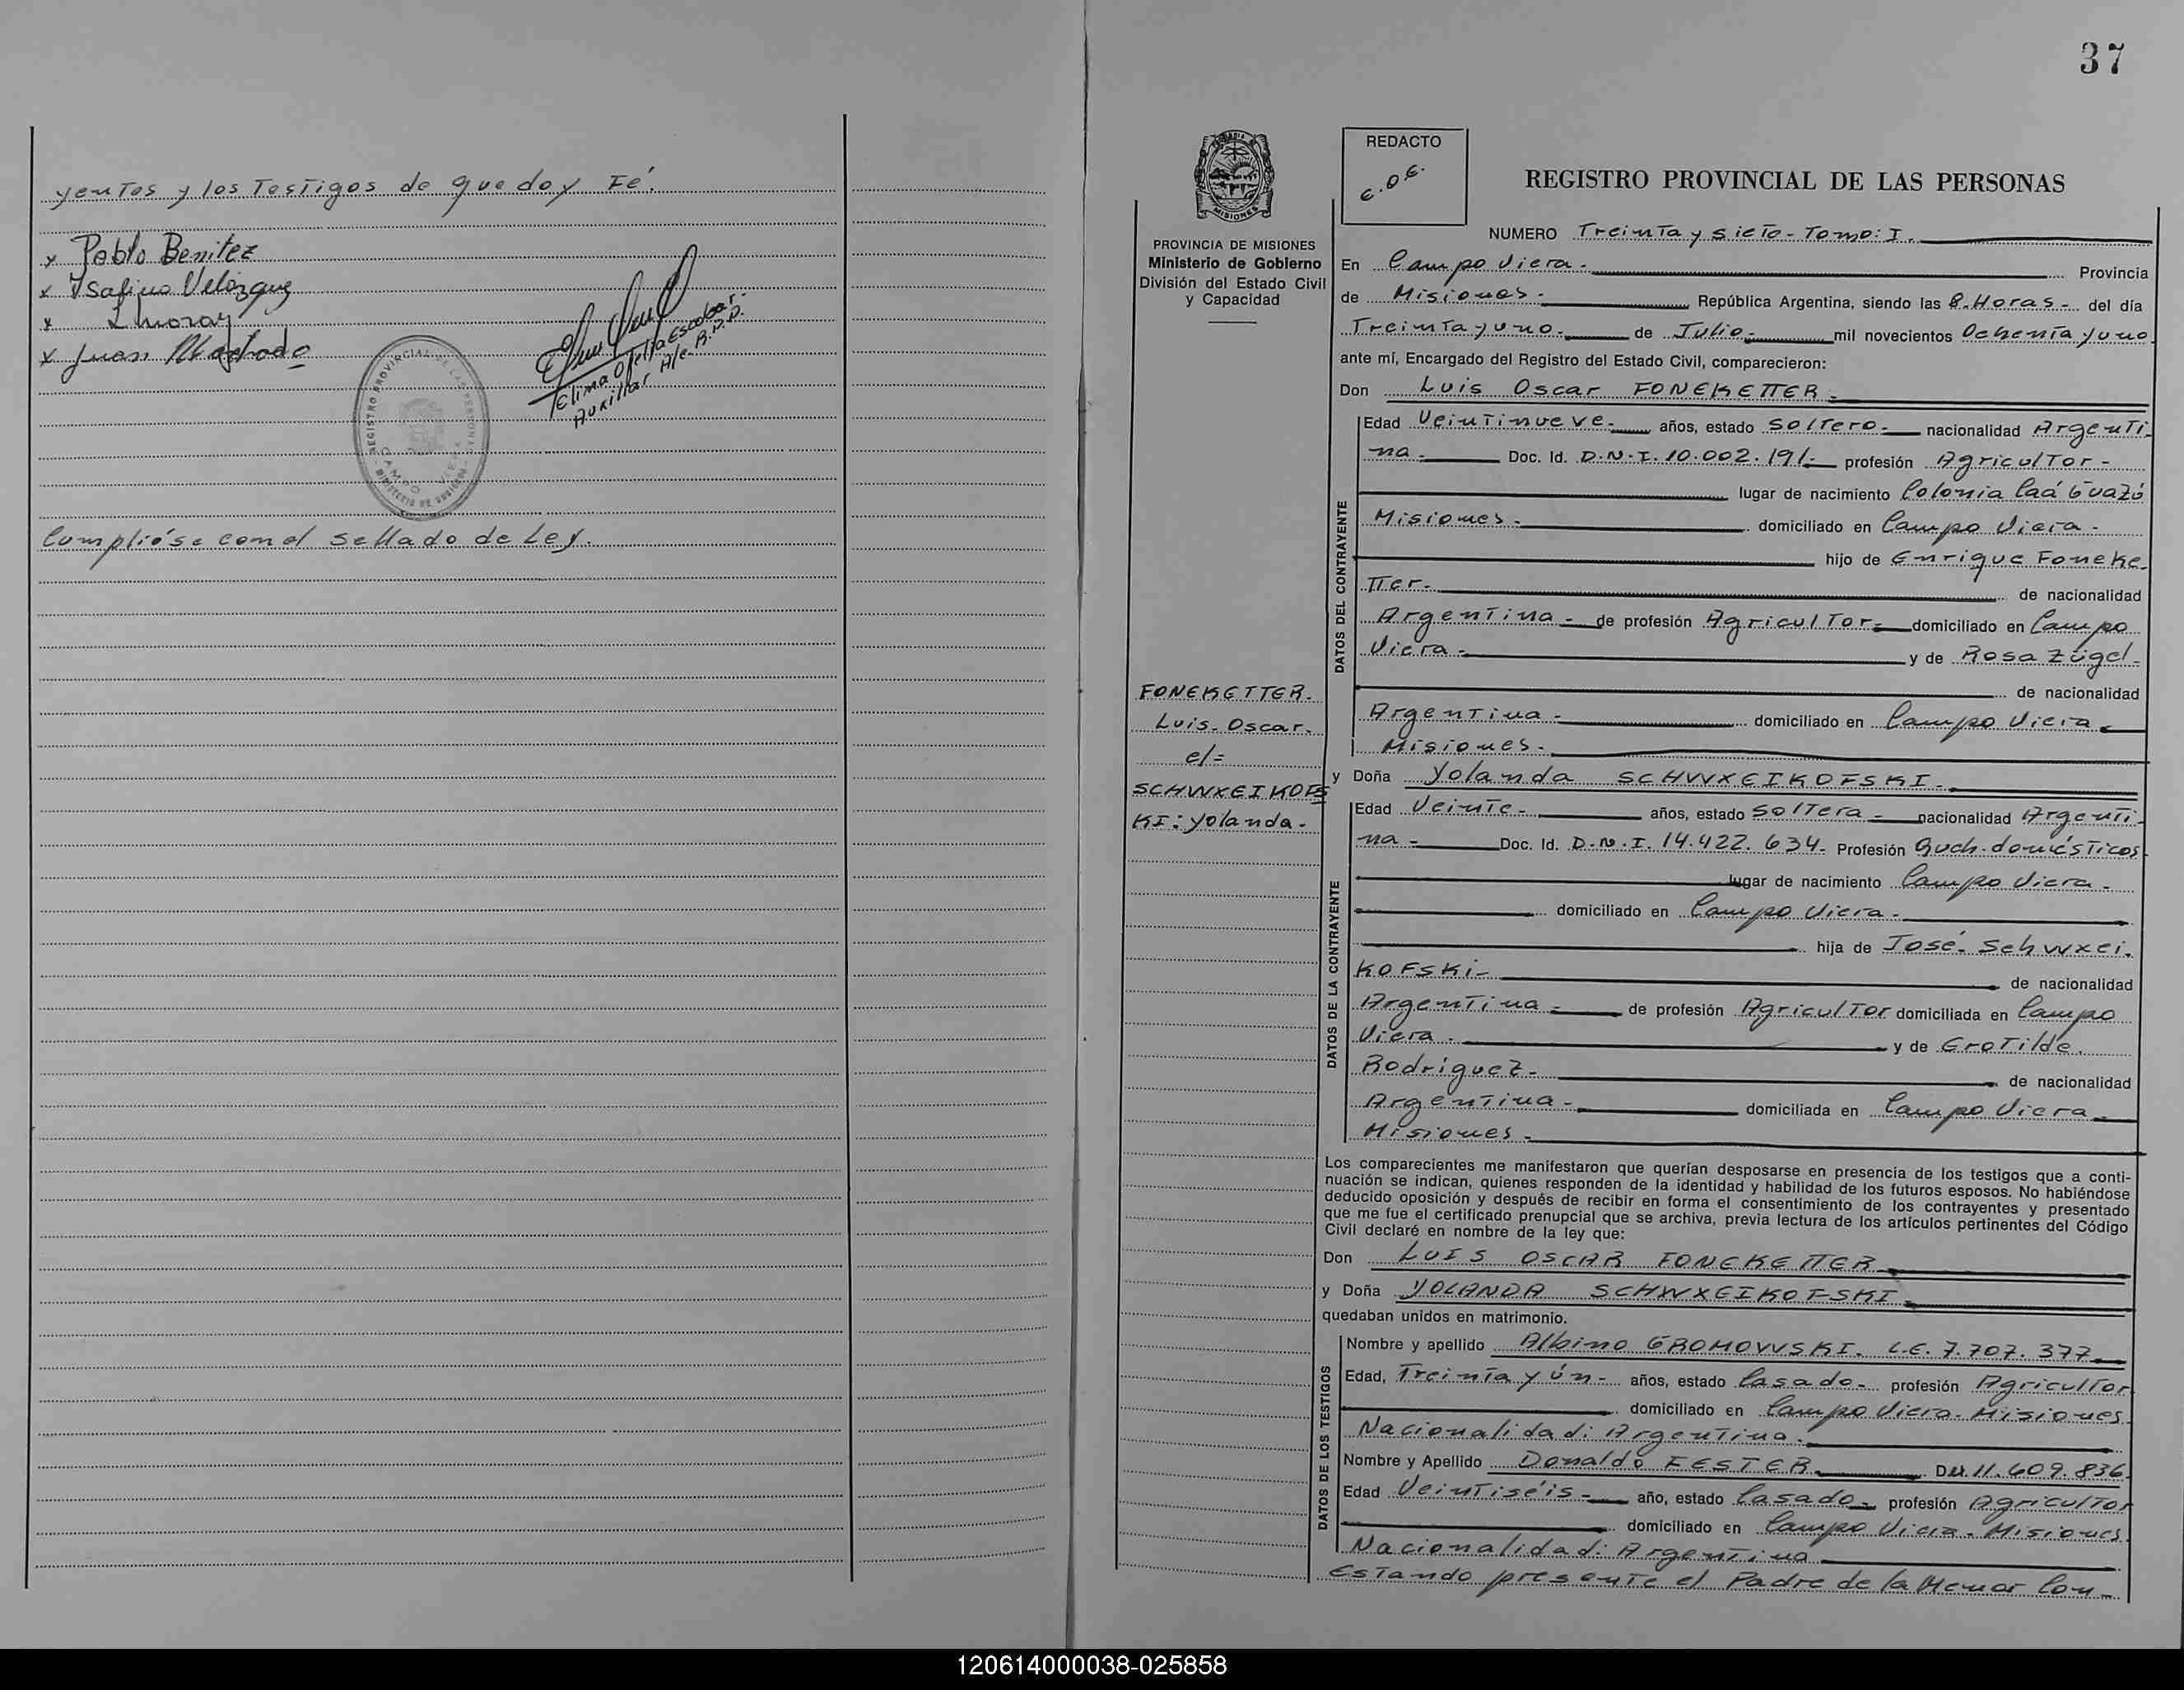 yentes y los Testigos de que doy Fé.
x Pablo Benitez
x Ysafino Velázquez
x
x Juan Machado
Telima Ofelia Escobar.
Auxiliar A/c. R.P.P.
REGISTRO PROVINCIAL DE LAS PERSONAS
CAMPO VIERA
MINISTERIO DE GOBIERNO
Cumplióse con el sellado de Ley.
37
MISIONES
PROVINCIA DE MISIONES
Ministerio de Gobierno
División del Estado Civil
y Capacidad
REDACTO
C.O.E.
REGISTRO PROVINCIAL DE LAS PERSONAS
NUMERO Treinta y siete - Tomo: I.
En Campo Viera.- Provincia
de Misiones.- República Argentina, siendo las 8.Horas.- del día
Treinta y uno.- de Julio.- mil novecientos Ochenta y uno
ante mí, Encargado del Registro del Estado Civil, comparecieron:
Don Luis Oscar FONEKETTER.-
DATOS DEL CONTRAYENTE
Edad Veintinueve.- años, estado soltero.- nacionalidad Argenti-
na.- Doc. Id. D.N.I. 10.002.191.- profesión Agricultor-
lugar de nacimiento Colonia Caá Guazú
Misiones.- domiciliado en Campo Viera.-
hijo de Enrique Foneke-
tter.- de nacionalidad
Argentina.- de profesión Agricultor.- domiciliado en Campo
Viera.- y de Rosa Zúgel-
de nacionalidad
Argentina.- domiciliado en Campo Viera.-
Misiones.-
FONEKETTER.
Luis. Oscar.
c/=
SCHWXEIKOFS
KI: Yolanda.-
y Doña Yolanda SCHWXEIKOFSKI.-
DATOS DE LA CONTRAYENTE
Edad Veinte- años, estado Soltera.- nacionalidad Argenti-
na.- Doc. Id. D.N.I. 14.422.634- Profesión Queh. domésticos
lugar de nacimiento Campo Viera.-
domiciliado en Campo Viera.-
hija de José- Schwxei-
kofski- de nacionalidad
Argentina.- de profesión Agricultor domiciliada en Campo
Viera.- y de Grotilde
Rodríguez- de nacionalidad
Argentina.- domiciliada en Campo Viera.-
Misiones.-
Los comparecientes me manifestaron que querían desposarse en presencia de los testigos que a conti-
nuación se indican, quienes responden de la identidad y habilidad de los futuros esposos. No habiéndose
deducido oposición y después de recibir en forma el consentimiento de los contrayentes y presentado
que me fue el certificado prenupcial que se archiva, previa lectura de los artículos pertinentes del Código
Civil declaré en nombre de la ley que:
Don LUIS OSCAR FONEKETTER.
y Doña YOLANDA SCHWXEIKOFSKI
quedaban unidos en matrimonio.
DATOS DE LOS TESTIGOS
Nombre y apellido Albino GROMOWSKI. L.E. 7.707.377
Edad, Treinta y ún- años, estado Casado- profesión Agricultor
domiciliado en Campo Viera. Misiones
Nacionalidad: Argentina.-
Nombre y Apellido Donaldo FESTER. DNI. 11.609.836
Edad Veintiséis- año, estado Casado- profesión Agricultor
domiciliado en Campo Viera. Misiones
Nacionalidad: Argentina
Estando presente el Padre de la Menor Con-
120614000038-025858